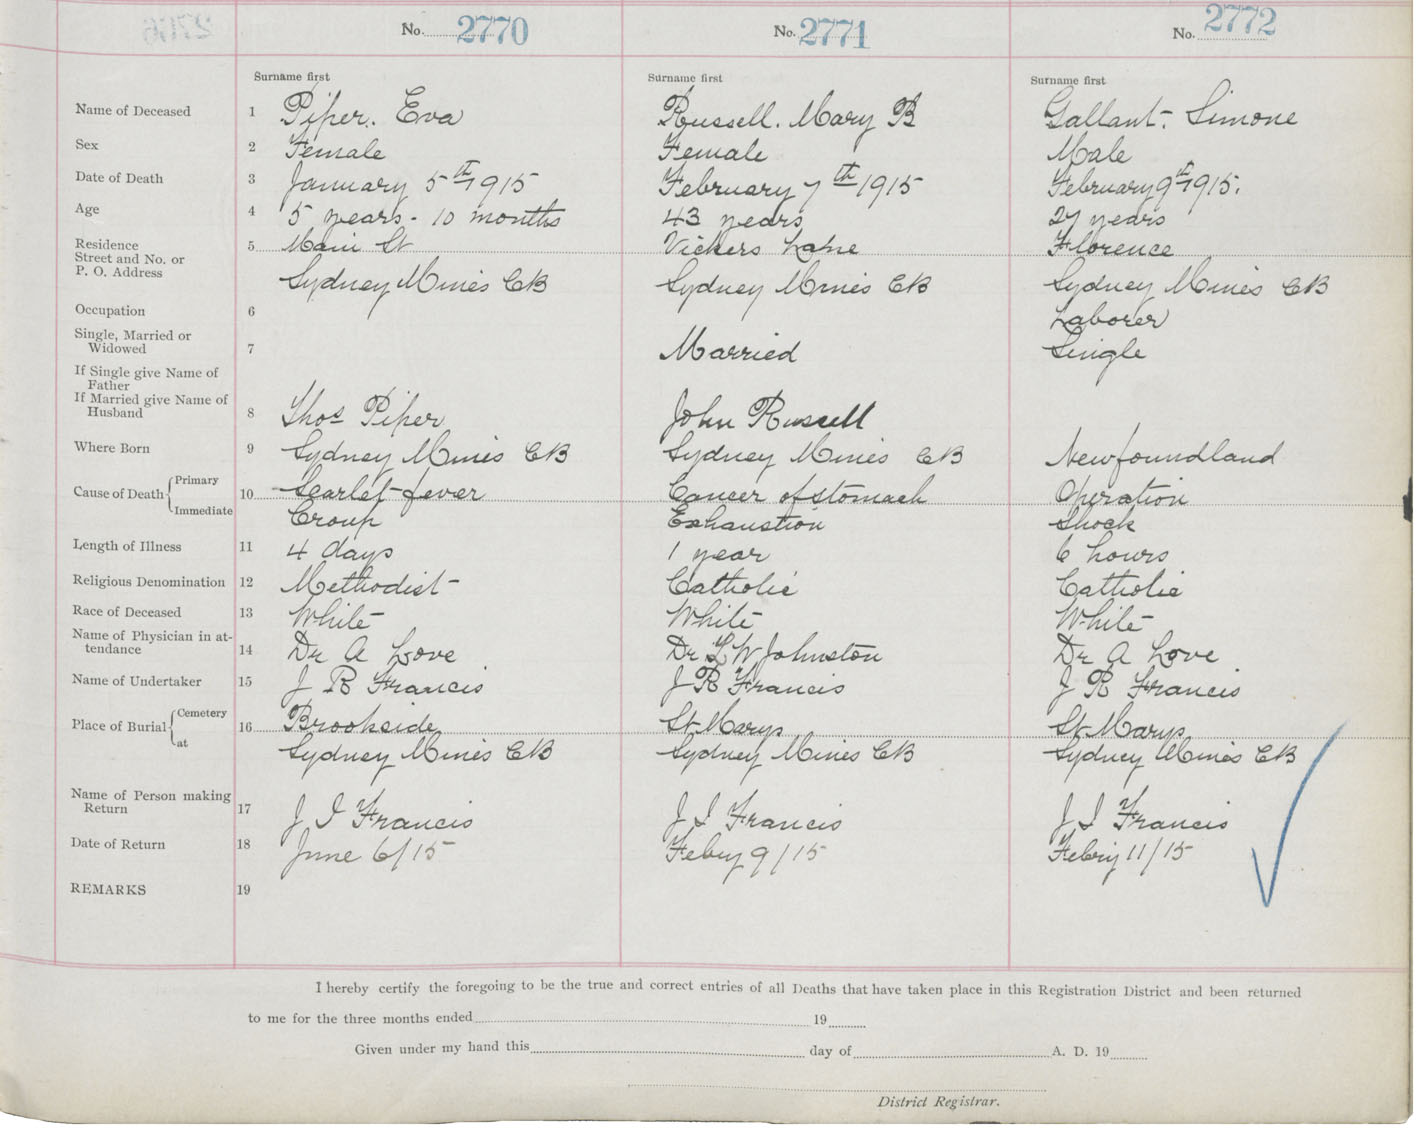 No. 2770 No. 2771 No. 2772
Surname first Surname first Surname first
Name of Deceased 1 Piper. Eva Russell. Mary B Gallant. Simone
Sex 2 Female Female Male
Date of Death 3 January 5th 1915 February 7th 1915 February 9th 1915.
Age 4 5 years - 10 months 43 years 27 years
Residence
Street and No. or 5 Main St Vickers Lane Florence
P. O. Address Sydney Mines CB Sydney Mines CB Sydney Mines CB
Occupation 6 Laborer
Single, Married or
Widowed 7 Married Single
If Single give Name of
Father
If Married give Name of
Husband 8 Thos Piper John Russell
Where Born 9 Sydney Mines CB Sydney Mines CB Newfoundland
Cause of Death Primary 10 Scarlet fever Cancer of stomach Operation
Immediate Croup Exhaustion Shock
Length of Illness 11 4 days 1 year 6 hours
Religious Denomination 12 Methodist Catholic Catholic
Race of Deceased 13 White White White
Name of Physician in at-
tendance 14 Dr A Love Dr L W Johnston Dr A Love
Name of Undertaker 15 J R Francis J R Francis J R Francis
Place of Burial Cemetery 16 Brookside St Marys St Marys
at Sydney Mines CB Sydney Mines CB Sydney Mines CB
Name of Person making
Return 17 J I Francis J I Francis J I Francis
Date of Return 18 June 6/15 Feby 9/15 Febry 11/15
REMARKS 19
I hereby certify the foregoing to be the true and correct entries of all Deaths that have taken place in this Registration District and been returned
to me for the three months ended 19
Given under my hand this day of A. D. 19
District Registrar.